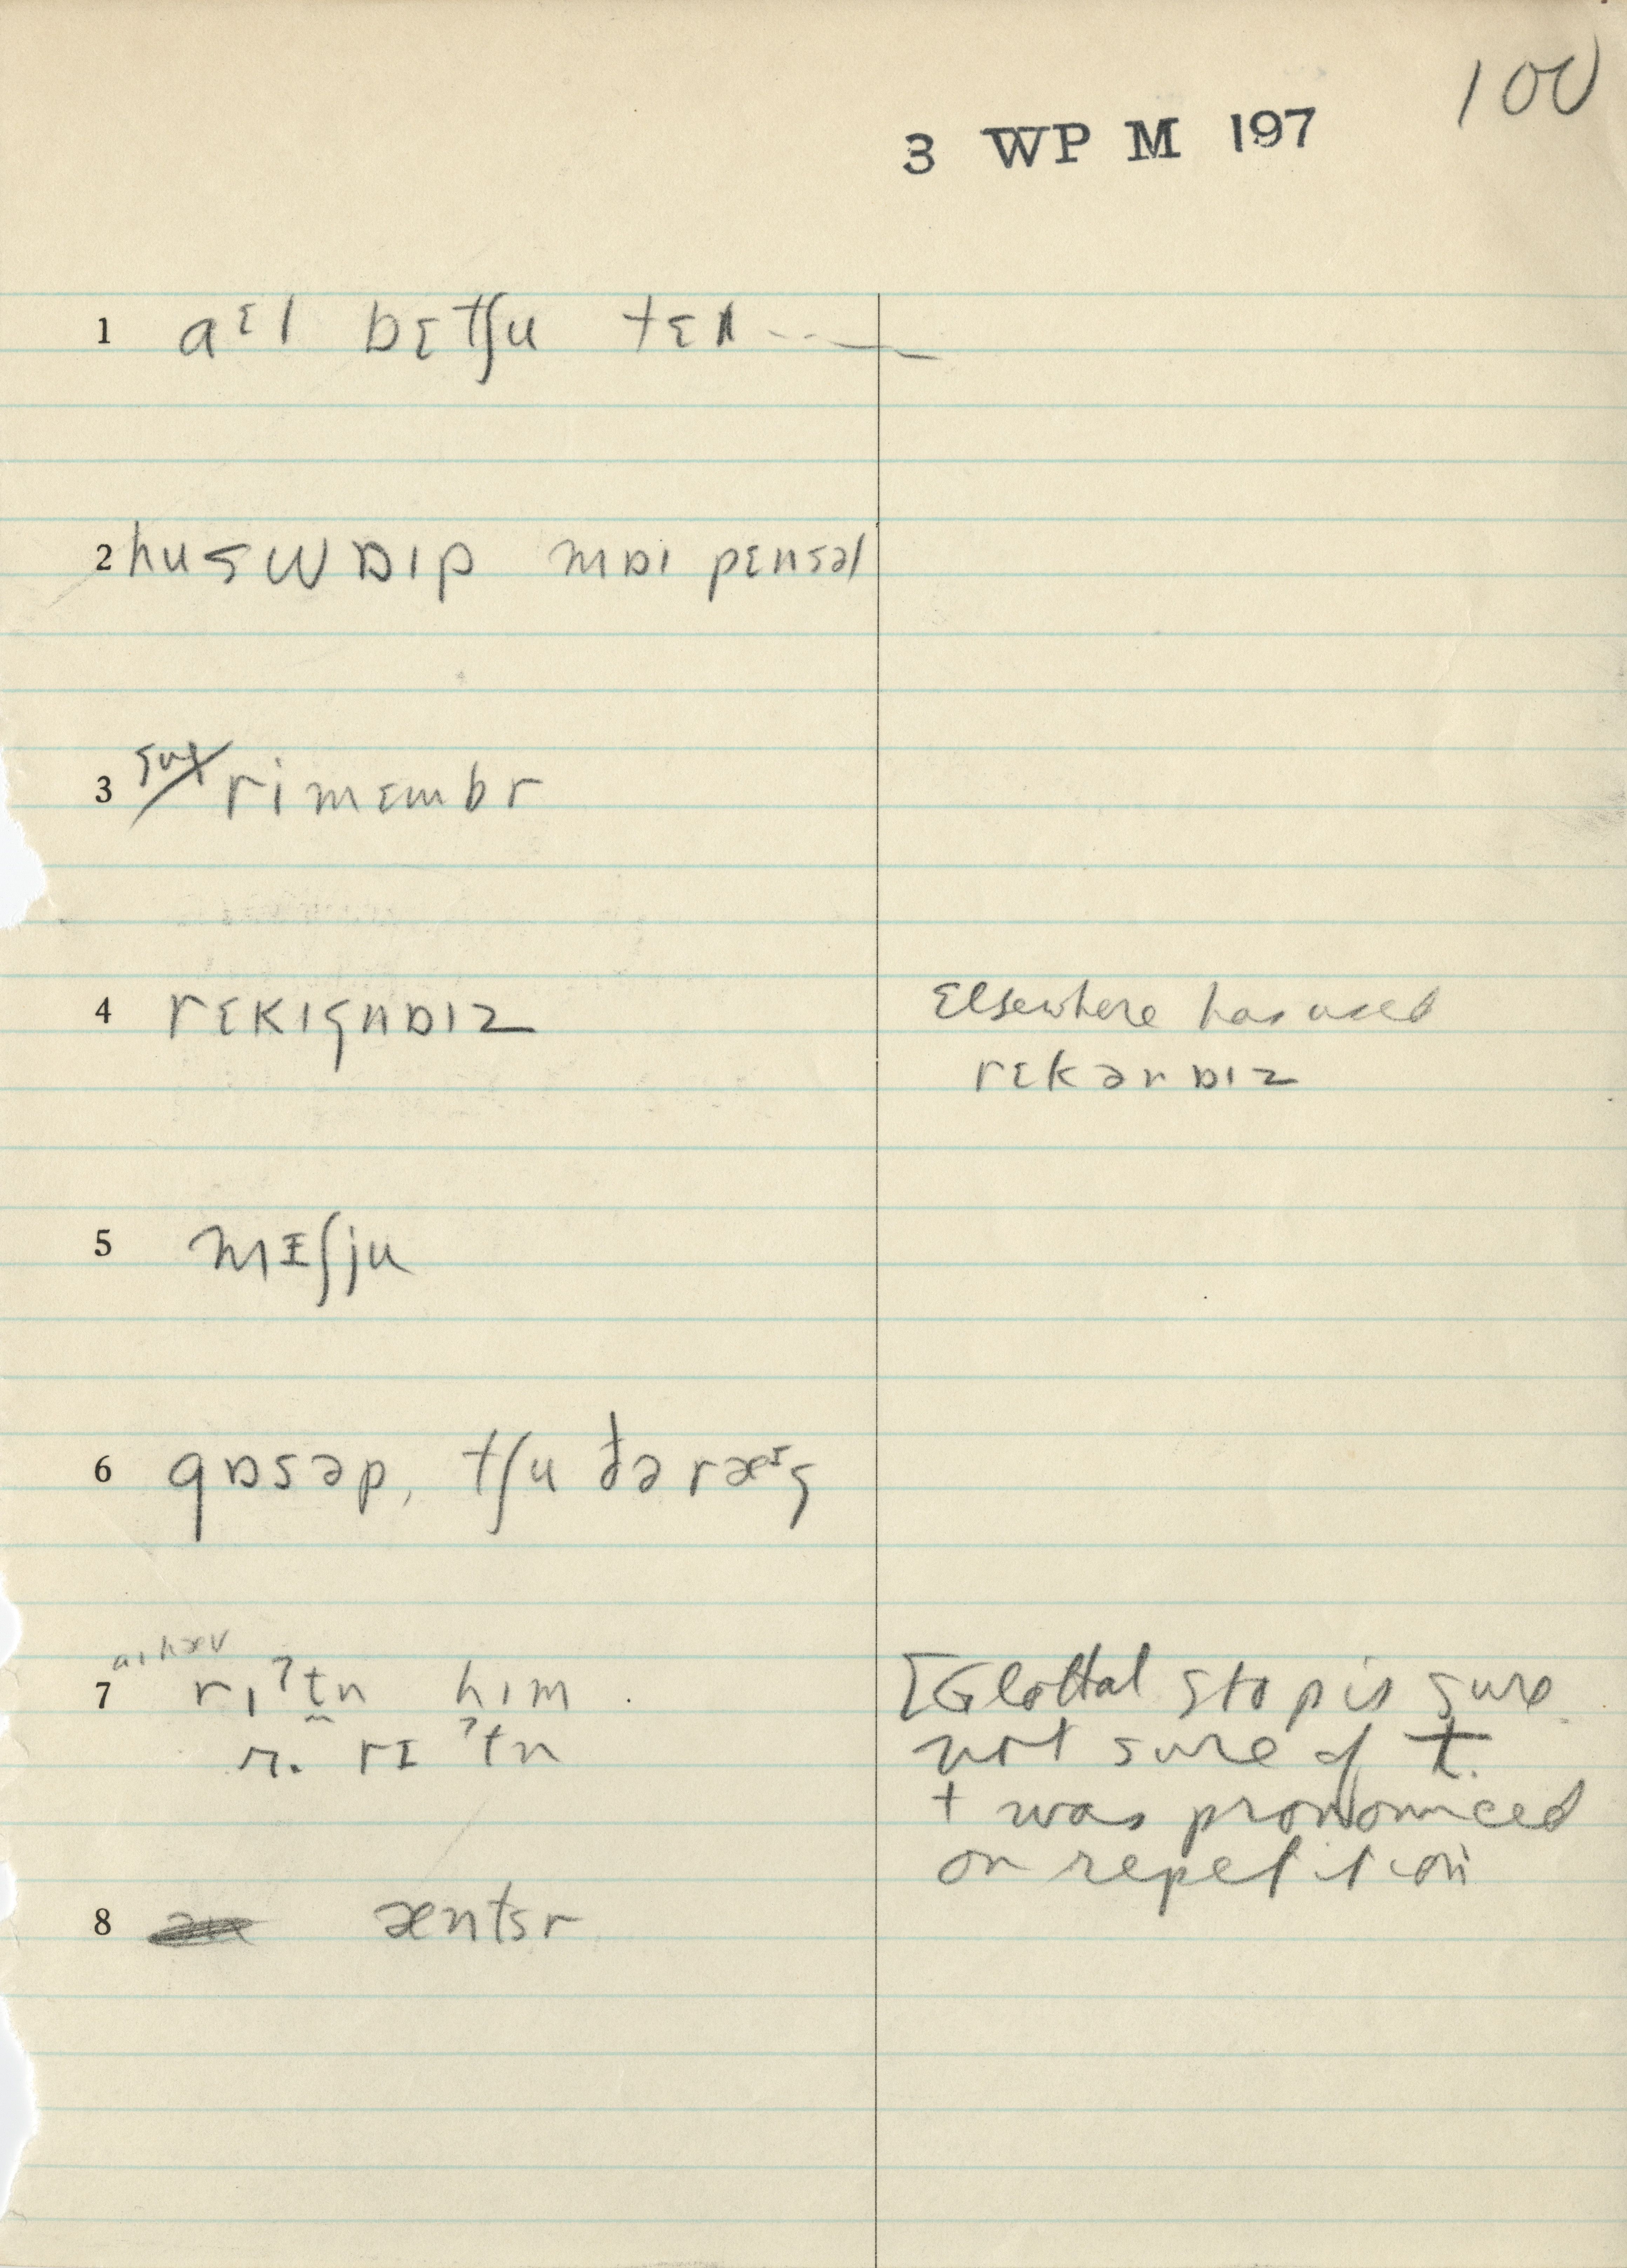 100
3 WP M 197
1 aᵋl bɛtʃu tɛn
2 huswɒɪp mɒɪ pɛnsəl
3 rimɛmbr
4 rɛkɪgnɒɪz
Elsewhere has used
rɛkənɒɪz
5 mɪʃju
6 gɒsəp, tʃu də ræᶦg
7 aɪ hæv
rɪˀtn hɪm
r. rɪ ˀtn
[Glottal stop is sure
not sure of t.
t was pronounced
on repetition
8 æntsr